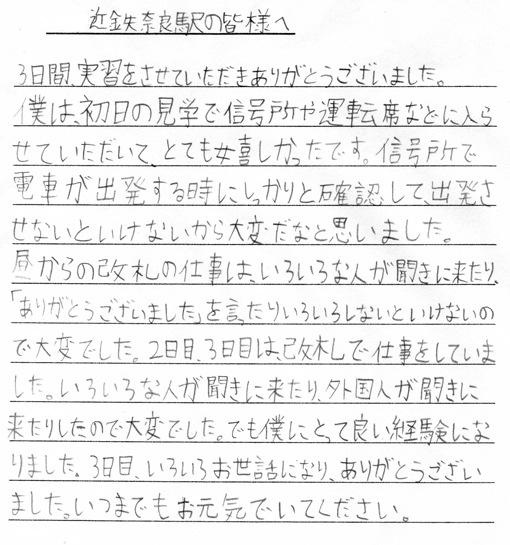 近鉄奈良駅の皆様へ
3日間、実習をさせていただきありがとうございました。
僕は、初日の見学で信号所や運転席などに入ら
せていただいて、とても嬉しかったです。信号所で
電車が出発する時にしっかりと確認して、出発さ
せないといけないから大変だなと思いました。
昼からの改札の仕事は、いろいろな人が聞きに来たり、
「ありがとうございました」を言ったりいろいろしないといけないの
で大変でした。2日目、3日目は改札で仕事をしていま
した。いろいろな人が聞きに来たり、外国人が聞きに
来たりしたので大変でした。でも僕にとって良い経験にな
りました。3日目、いろいろお世話になり、ありがとうござい
ました。いつまでもお元気でいてください。